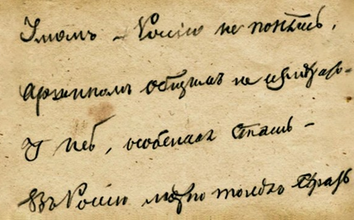 Умомъ – Россію не понять,
Аршиномъ общимъ не измѣрить –
У ней, особенная стать –
Въ Россію можно только вѣрить